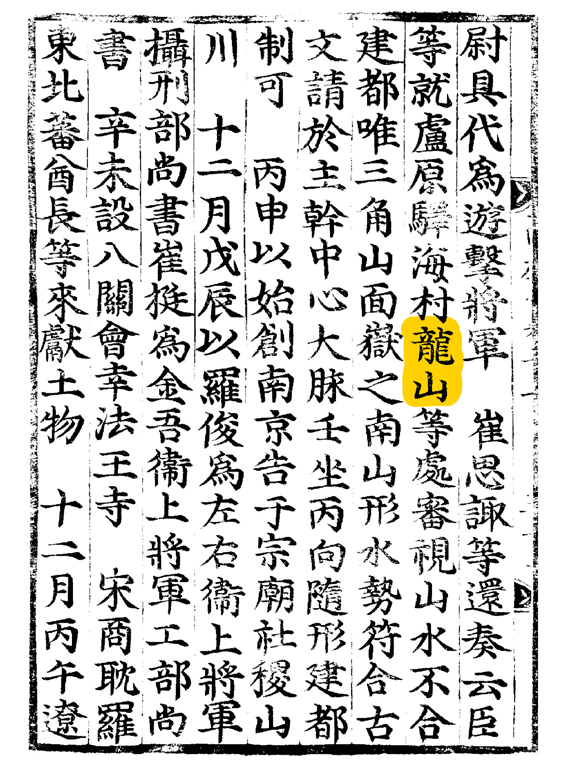 尉具代爲遊擊將軍　崔思諏等還奏云臣
等就盧原驛海村龍山等處審視山水不合
建都唯三角山面嶽之南山形水勢符合古
文請於主幹中心大脉壬坐丙向隨形建都
制可　丙申以始創南京告于宗廟社稷山
川　十二月戊辰以羅俊爲左右衞上將軍
攝刑部尚書崔挺爲金吾衞上將軍工部尚
書　辛未設八關會幸法王寺　宋商耽羅
東北蕃酋長等來獻土物　十二月丙午遼